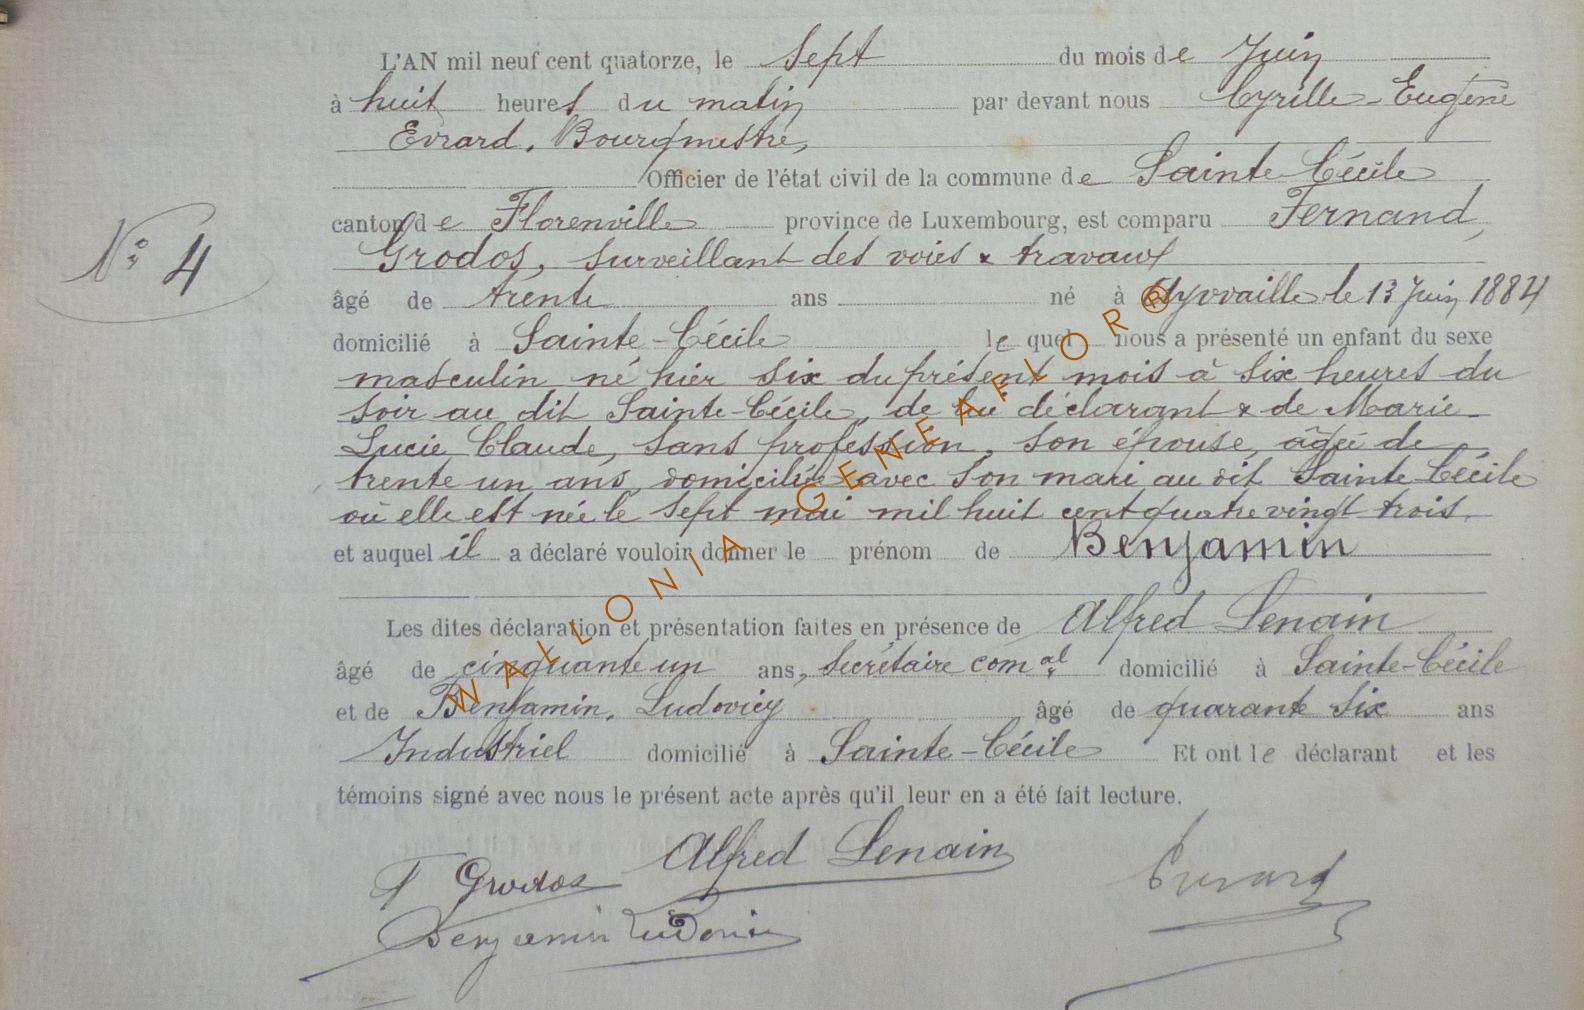 L'AN mil neuf cent quatorze, le Sept du mois de Juin
à huit heures du matin par devant nous Cyrille-Eugène
Evrard, Bourgmestre,
Officier de l'état civil de la commune de Sainte-Cécile
canton de Florenville province de Luxembourg, est comparu Fernand,
Grodos, surveillant des voies & travaux
âgé de trente ans né à Ayvaille le 13 Juin 1884
domicilié à Sainte-Cécile lequel nous a présenté un enfant du sexe
masculin, né hier six du présent mois à six heures du
soir au dit Sainte-Cécile, de lui déclarant & de Marie-
Lucie, Claude, sans profession, son épouse, âgée de
trente un ans, domiciliée avec son mari au dit Sainte-Cécile
où elle est née le sept mai mil huit cent quatre vingt trois.
et auquel il a déclaré vouloir donner le prénom de Benjamin
Nº: 4
Les dites déclaration et présentation faites en présence de Alfred Lenain
âgé de cinquante un ans, Secrétaire com.al domicilié à Sainte-Cécile
et de Benjamin, Ludovicy âgé de quarante six ans
Industriel domicilié à Sainte-Cécile Et ont le déclarant et les
témoins signé avec nous le présent acte après qu'il leur en a été fait lecture.
F Grodos Alfred Lenain Evrard
Benjamin Ludovicy
WALLONIA GENEAFLOR®